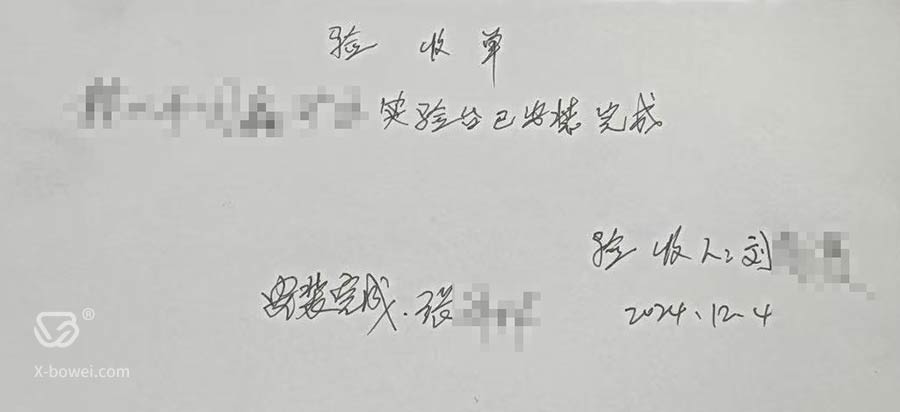 验收单
实验台已安装完成
验收人:刘
安装完成.张
2024.12.4
®
X-bowei.com